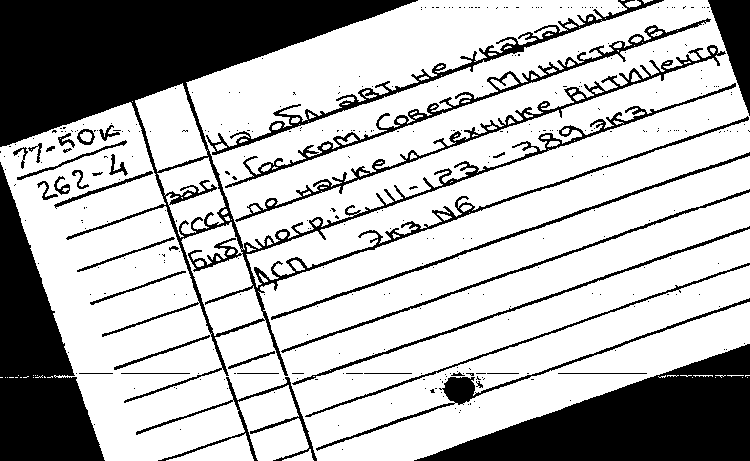 77-50к
262-4
На обл. авт. не указаны. В
заг.: Гос. ком. Совета Министров
СССР по науке и технике, ВНТИЦентр.
Библиогр.: с. 111-123. - 389 экз.
ДСП. Экз. N6.